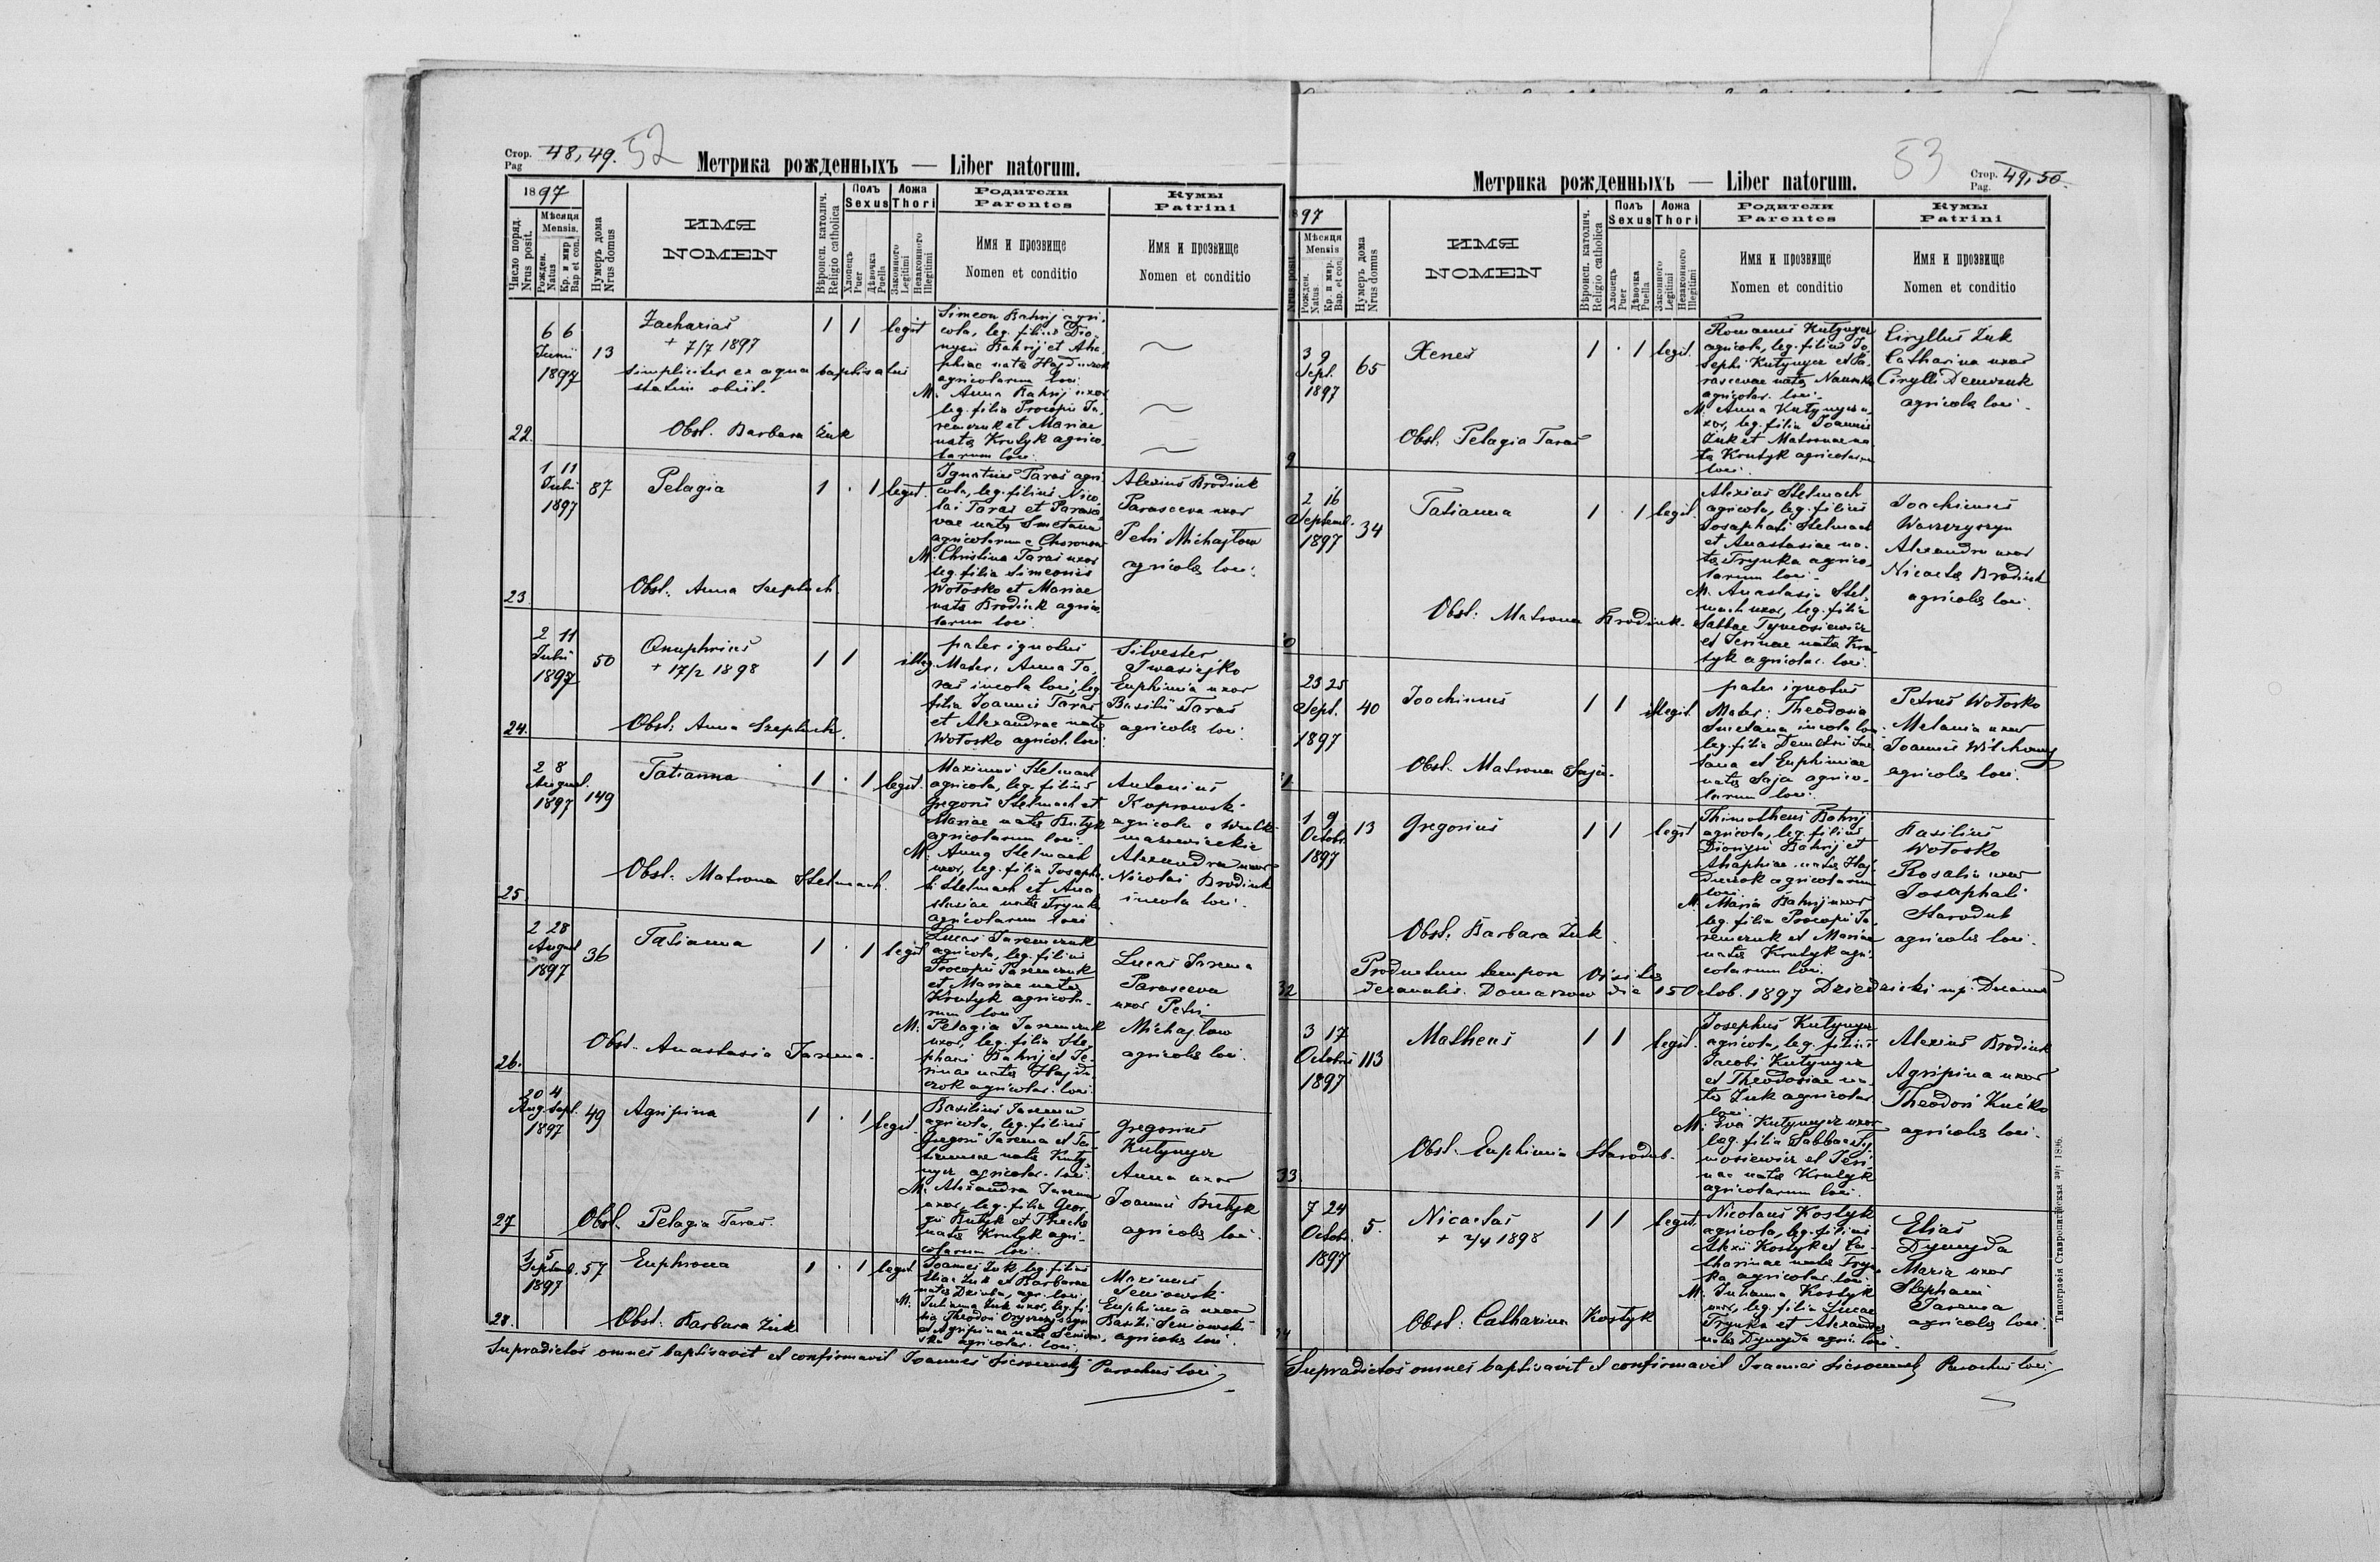 Стор. 48, 49. 52
Pag
Метрика рожденныхъ — Liber natorum.
1897
Число поряд. Nrus posit.
Мѣсяця Mensis.
Рожден. Natus
Кр. и мир Bap et con.
Нумеръ дома Nrus domus
ИМЯ
NOMEN
Вѣроисп. католич. Religio catholica
Полъ Sexus
Хлопецъ Puer
Дѣвочка Puella
Ложа Thori
Законного Legitimi
Незаконного Illegitimi
Родители
Parentes
Имя и прозвище
Nomen et conditio
Кумы
Patrini
Имя и прозвище
Nomen et conditio
22.
6 6
Junii
1897
13
Zacharias
+ 7/7 1897
simpliciter ex aqua baptisatus
statim obiit.
Obst. Barbara Żuk
1 1 legit
Simeon Bahrij agri-
cola, leg. filius Dio-
nysii Bahrij et Aha-
phiae nata Hajduczok
agricolarum loci
M. Anna Bahrij uxor
leg. filia Procopii Ja-
remczuk et Mariae
nata Krutyk agrico-
larum loci.
23.
1 11
Julii
1897
87
Pelagia
Obst. Anna Szeptuch.
1 . 1 legit.
Ignatius Taras agri-
cola, leg. filius Nico-
lai Taras et Parasce-
vae nata Smetana
agricolarum e
M. Christina Taras uxor
leg. filia Simeonis
Wołosko et Mariae
nata Brodiuk agrico-
larum loci.
Alexius Brodiuk
Parasceva uxor
Petri Michajłow
agricolae loci.
24.
2 11
Julii
1897
50
Onuphrius
+ 17/2 1898
Obst. Anna Szeptuch.
1 1 illeg.
pater ignotus
Mater: Anna Ta-
ras incola loci, leg.
filia Joannis Taras
et Alexandrae nata
Wołosko agricol. loci.
Silvester
Iwasiejko
Euphimia uxor
Basilii Taras
agricolae loci.
25.
2 8
August.
1897
149
Tatianna
Obst. Matrona Stelmach.
1 . 1 legit.
Maximus Stelmach
agricola, leg. filius
Gregorii Stelmach et
Mariae nata Butyk
agricolarum loci.
M. Anna Stelmach
uxor, leg. filia Josapha-
ti Stelmach et Ana-
stasiae nata Trynka
agricolarum loci
Antonius
Koprowski
agricola e

Alexandra uxor
Nicolai Brodiuk
incola loci.
26.
2 28
August
1897
36
Tatianna
Obst. Anastasia Jarema.
1 . 1 legit
Lucas Jaremczuk
agricola, leg. filius
Procopii Jaremczuk
et Mariae nata
Krutyk agricola-
rum loci
M. Pelagia Jaremczuk
uxor, leg. filia Ste-
phani Bahrij et Je-
rinae nata Hajdu-
czok agricolar. loci.
Lucas Jarema
Parasceva
uxor Petri
Michajłow
agricolae loci.
27
20 4
Aug. Sept.
1897
49
Agripina
Obst. Pelagia Taras.
1 . 1 legit.
Basilius Jarema
agricola, leg. filius
Gregorii Jarema et
nata Kuty-
nycz agricolar. loci.
M. Alexandra Jarema
uxor, leg. filia Geor-
gii Butyk et Theclae
nata Krutyk agri-
colarum loci.
Gregorius
Kutynycz
Anna uxor
Joannis Butyk
agricolae loci.
28.
3 5
Septemb.
1897
57
Euphrona
Obst. Barbara Żuk
1 . 1 legit
Joannes Żuk leg. filius
Eliae Żuk et Barbarae
nata Dziuba, agr. loci.
M. Julianna Żuk uxor, leg. fi-
lia Theodori
et Agripinae nata Seniow-
ska agricolar. loci.
Maximus
Seniowski
Euphimia uxor
Basilii Seniowski
agricolae loci.
Supradictos omnes baptisavit et confirmavit Joannes Parochus loci
53 Стор. 49, 50.
Pag.
Метрика рожденныхъ — Liber natorum.
1897
Nrus posit
Мѣсяця Mensis
Рожден. Natus.
Кр. и мир. Bap. et con.
Нумеръ дома Nrus domus
ИМЯ
NOMEN
Вѣроисп. католич. Religio catholica
Полъ Sexus
Хлопецъ Puer
Дѣвочка Puella
Ложа Thori
Законного Legitimi
Незаконного Illegitimi
Родители
Parentes
Имя и прозвище
Nomen et conditio
Кумы
Patrini
Имя и прозвище
Nomen et conditio
9
3 9
Sept.
1897
65
Xenes
Obst. Pelagia Taras
1 . 1 legit.
Romanus Kutynycz
agricola, leg. filius Jo-
sephi Kutynycz et Pa-
rascevae nata Naumko
agricolar. loci.
M. Anna Kutynycz u-
xor, leg. filia Joannis
Żuk et Matronae na-
ta Krutyk agricolarum
loci.
Cyryllus Żuk
Catharina uxor
Cyrylli Demczuk
agricolae loci.
0
2 16
Septemb.
1897
34
Tatianna
Obst. Matrona Brodiuk.
1 . 1 legit.
Alexius Stelmach
agricola, leg. filius
Josaphati Stelmach
et Anastasiae na-
ta Trynka agrico-
larum loci.
M. Anastasia Stel-
mach uxor, leg. filia
Sabbae Tymosiewicz
et Jerinae nata Kru-
tyk agricolar. loci.
Joachimus
Wawryszyn
Alexandra uxor
Nicaetae Brodiuk
agricolae loci.
1
23 25
Sept.
1897
40
Joachimus
Obst. Matrona Saja.
1 1 illegit.
pater ignotus
Mater: Theodosia
Smetana incola loci.
leg. filia Demetrii Sme-
tana et Euphimiae
nata Saja agrico-
larum loci.
Petrus Wołosko
Melania uxor
Joannis
agricolae loci.
32
1 9
Octob.
1897
13
Gregorius
Obst. Barbara Żuk
1 1 legit
Thimotheus Bahrij
agricola, leg. filius
Dionysii Bahrij et
Ahaphiae nata Haj-
duczok agricolarum
loci.
M. Maria Bahrij uxor
leg. filia Procopii Ja-
remczuk et Mariae
nata Krutyk agri-
colarum loci.
Basilius
Wołosko
Rosalia uxor
Josaphati
Starodub
agricolae loci.
Productum tempore Visitae
decanalis. Domaszow die 15 Octob. 1897 Dziedzicki mp. Decanus
33
3 17
Octobris
1897
113
Matheus
Obst. Euphimia Starodub.
1 1 legit.
Josephus Kutynycz
agricola, leg. filius
Jacobi Kutynycz
et Theodosiae na-
ta Żuk agricolar
loci.
M. Eva Kutynycz uxor
leg. filia Sabbae Ty-
mosiewicz et Jeri-
nae nata Krutyk
agricolarum loci.
Alexius Brodiuk
Agripina uxor
Theodori Kućko
agricolae loci.
34
7 24
Octob.
1897
5.
Nicaetas
+ 2/4 1898
Obst. Catharina Kostyk
1 1 legit.
Nicolaus Kostyk
agricola, leg. filius
Alexii Kostyk et Ca-
tharinae nata Tryn-
ka agricolar. loci.
M. Julianna Kostyk
uxor, leg. filia Lucae
Trynka et Alexandrae
nata Dymyda agric. loci.
Elias
Dymyda
Maria uxor
Stephani
Jarema
agricolae loci.
Supradictos omnes baptisavit et confirmavit Joannes Parochus loci.
Типографія Ставропигійская зар. 1896.